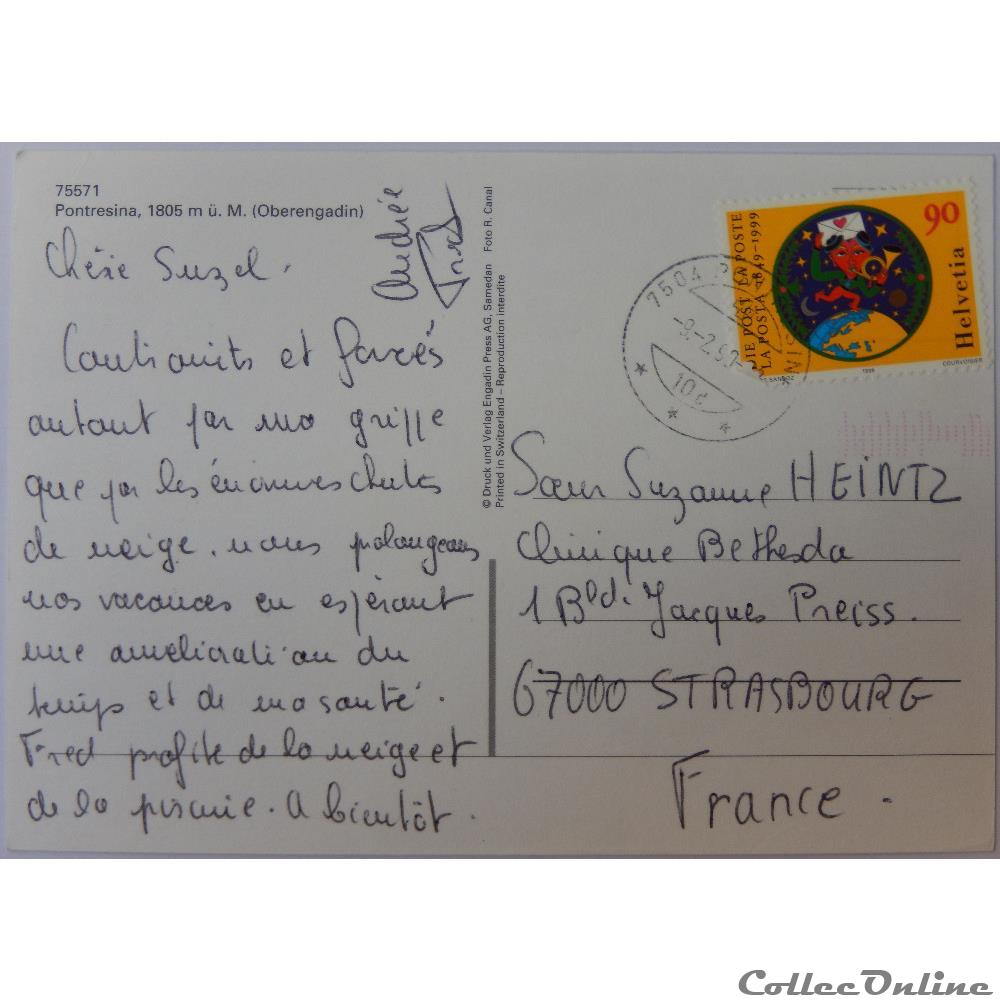 75571
Pontresina, 1805 m ü. M. (Oberengadin)
Chère Suzel,
Contraints et forcés
autant par ma grippe
que par les énormes chutes
de neige. nous prolongeons
nos vacances en espérant
une amélioration du
temps et de ma santé.
Fred profite de la neige et
de la piscine. A bientôt.
Andrée
Fred
© Druck und Verlag Engadin Press AG, Samedan Foto R. Canal
Printed in Switzerland – Reproduction interdite
7504
-9.-2.99-
10c
DIE POST LA POSTE
LA POSTA 1849–1999
90
Helvetia
COURVOISIER
1999
Sœur Suzanne HEINTZ
Clinique Bethesda
1 Bld. Jacques Preiss.
67000 STRASBOURG
France.
CollecOnline